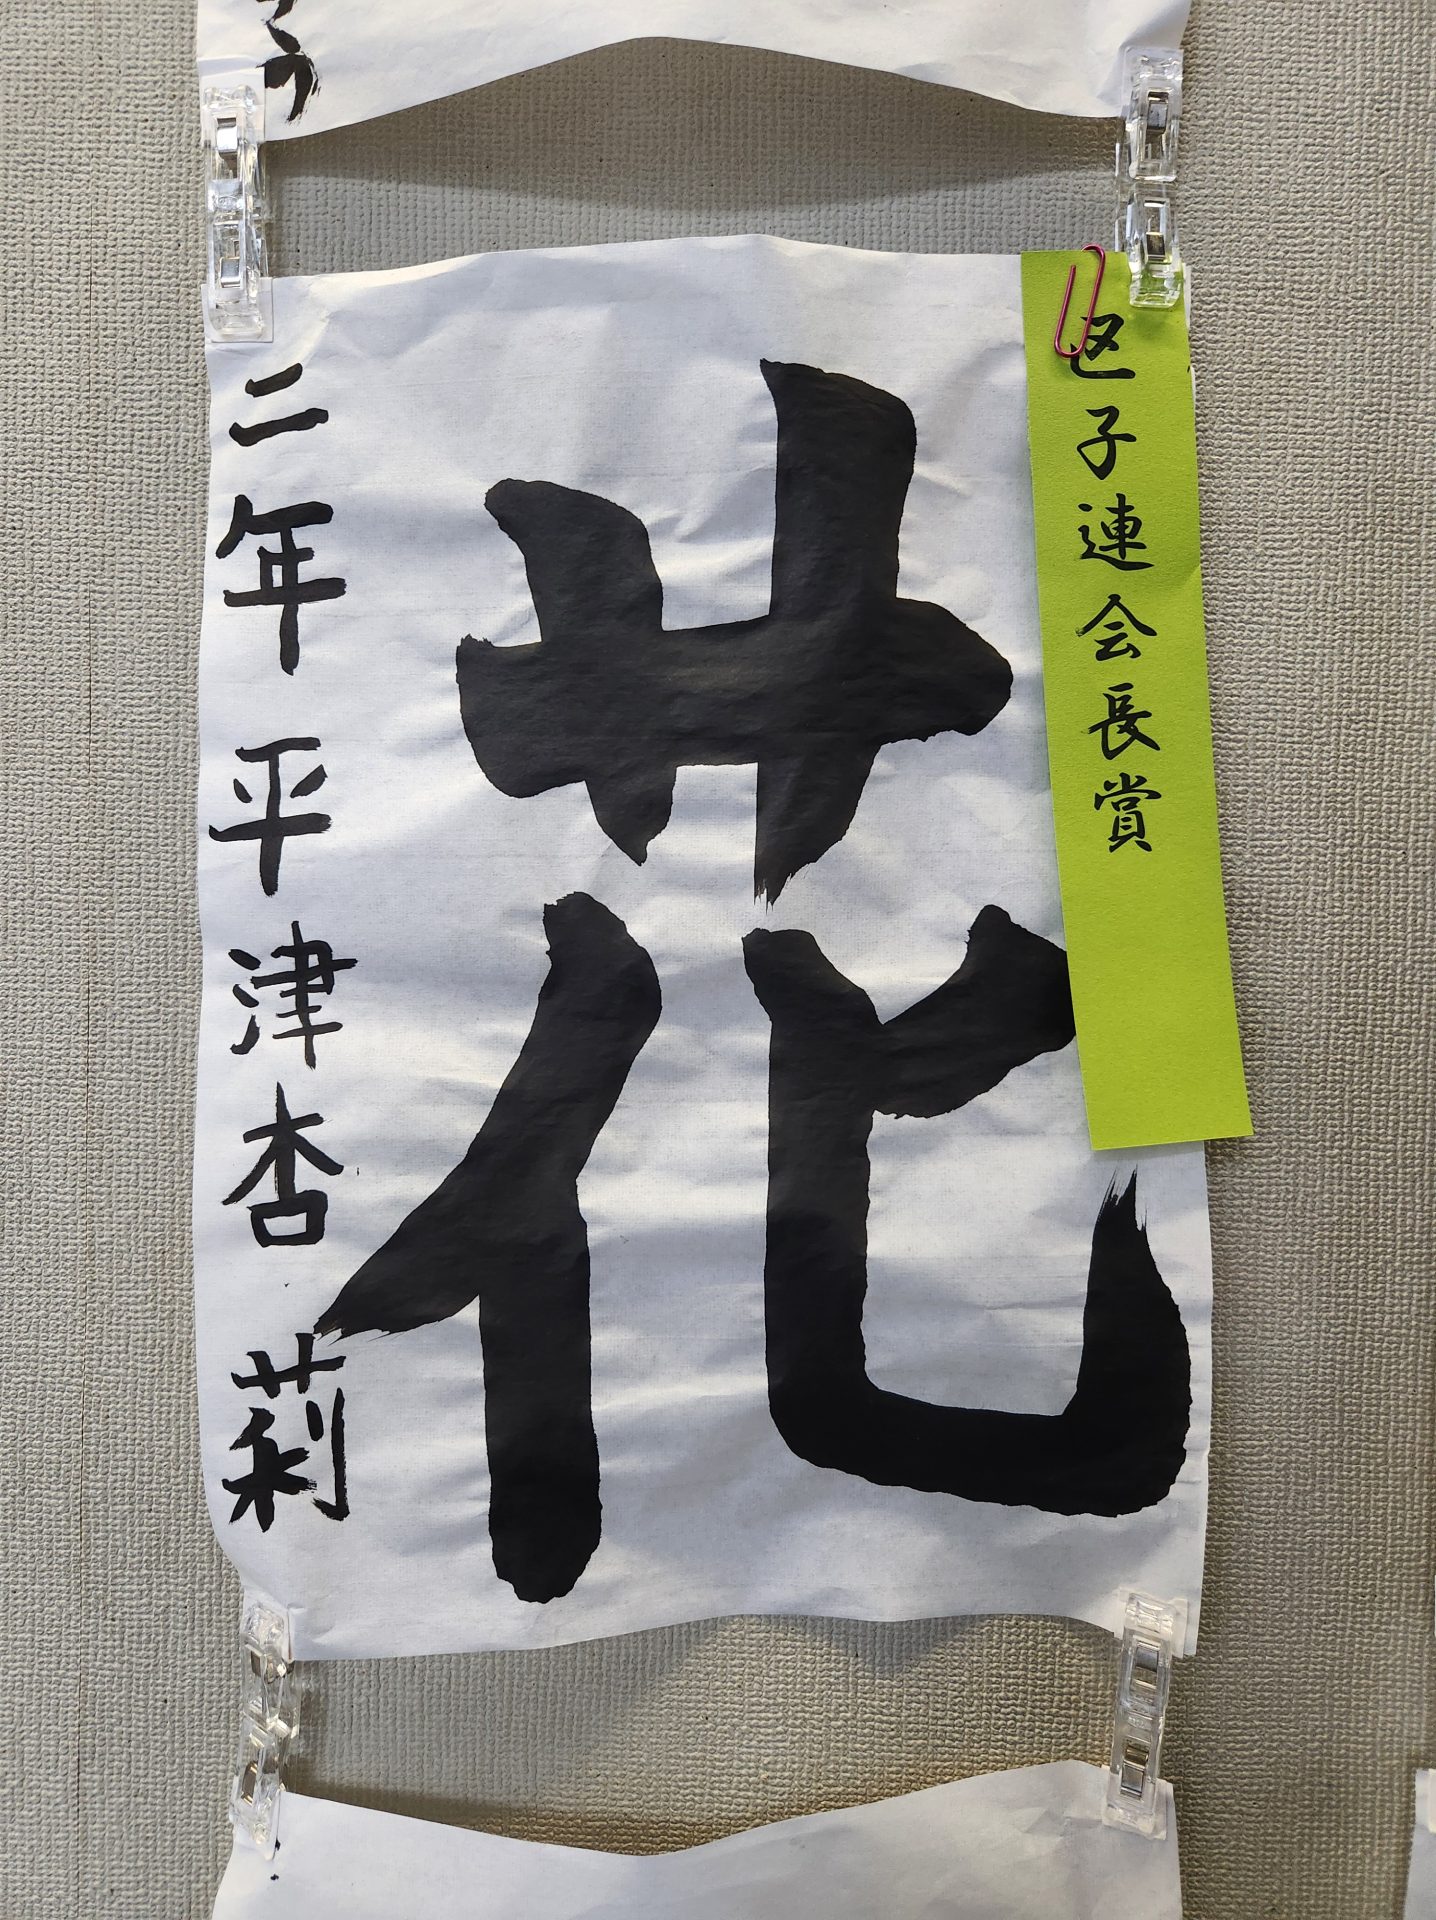 区子連会長賞
花
二年平津杏莉
う